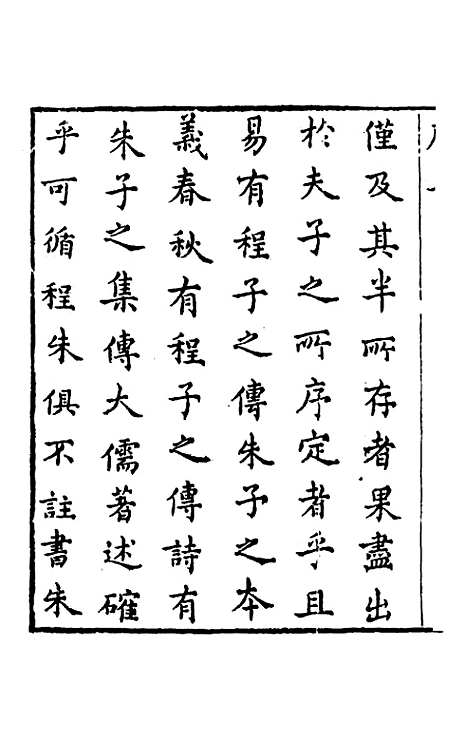 僅及其半所存者果盡出
於夫子之所序定者乎且
易有程子之傳朱子之本
義春秋有程子之傳詩有
朱子之集傳大儒著述確
乎可循程朱俱不註書朱